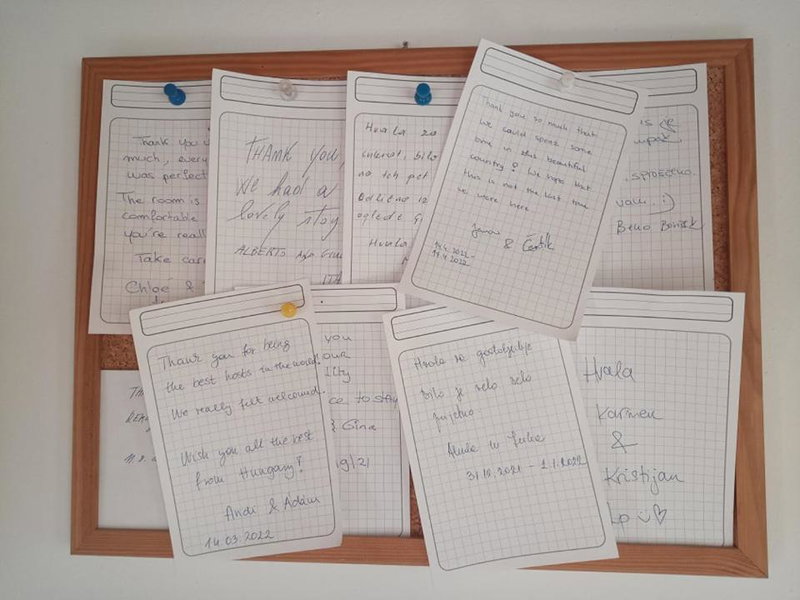 Thank you
much, every
was perfect
The room is
comfortable
you're
Take care
Chloé &
THANK YOU,
We had a
lovely stay
ALBERTO AND
ITA
Hvala za
bilo
Odlično iz
ogledi
Hvala
Thank you so much that
we could spent some
time in this beautiful
country! We hope that
this is not the last time
we were here
&
14.4.2022 -
17.4.2022
is
vam :)
Beno
Thank you for being
the best hosts in the world.
We really felt welcomed.
Wish you all the best
from Hungary!
Andi & Ádám
14.03.2022
you
our
lity
ce to stay
& Gina
19/21
TH
11.2.
Hvala za gostoljubje
Bilo je zelo zelo
31.12.2021 - 1.1.2022
Hvala
Karmen
&
Kristijan
Lp